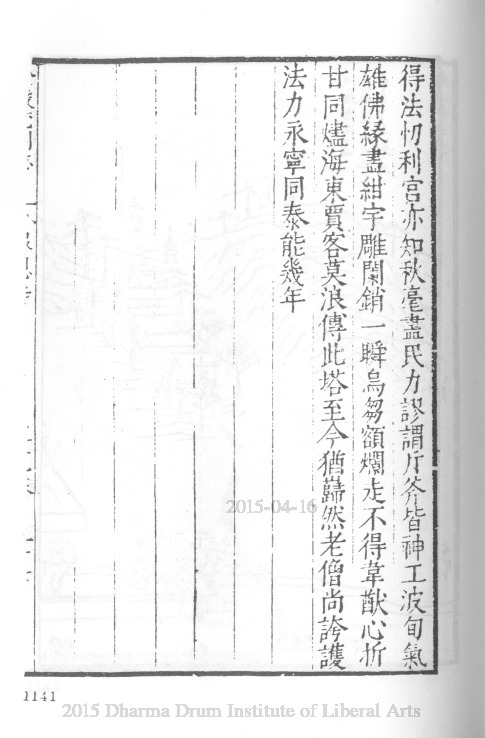 得法忉利宮亦知秋毫盡民力謬謂斤斧皆神工波旬氣
雄佛緣盡紺宇雕闌銷一瞬烏芻額爛走不得韋猷心折
甘同燼海東賈客莫浪傳此塔至今猶巋然老僧尚誇護
法力永寧同泰能幾年
1141
2015-04-16
2015 Dharma Drum Institute of Liberal Arts